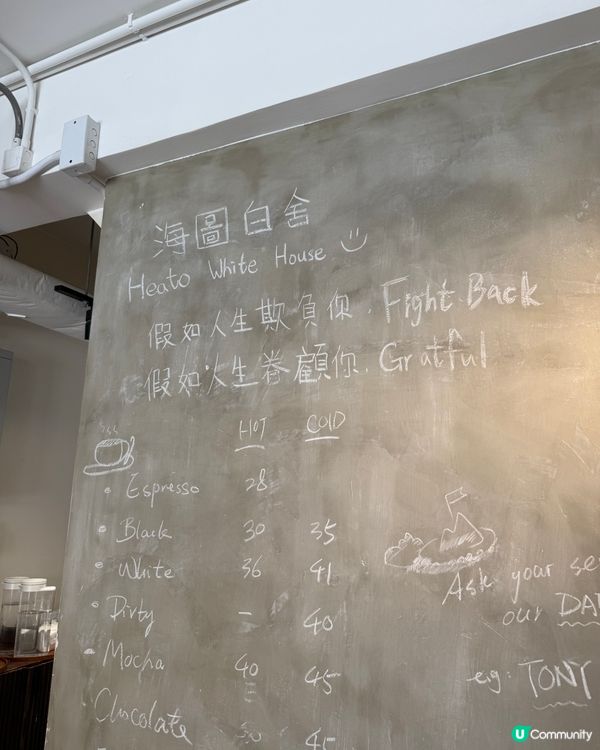 海圖白舍
Heato White House
假如人生欺負你, Fight Back
假如人生眷顧你, Gratful
HOT COLD
Espresso 28
Black 30 35
White 36 41
Dirty – 40
Mocha 40 45
Chocolate
Ask your
our
eg: TONY
U Community